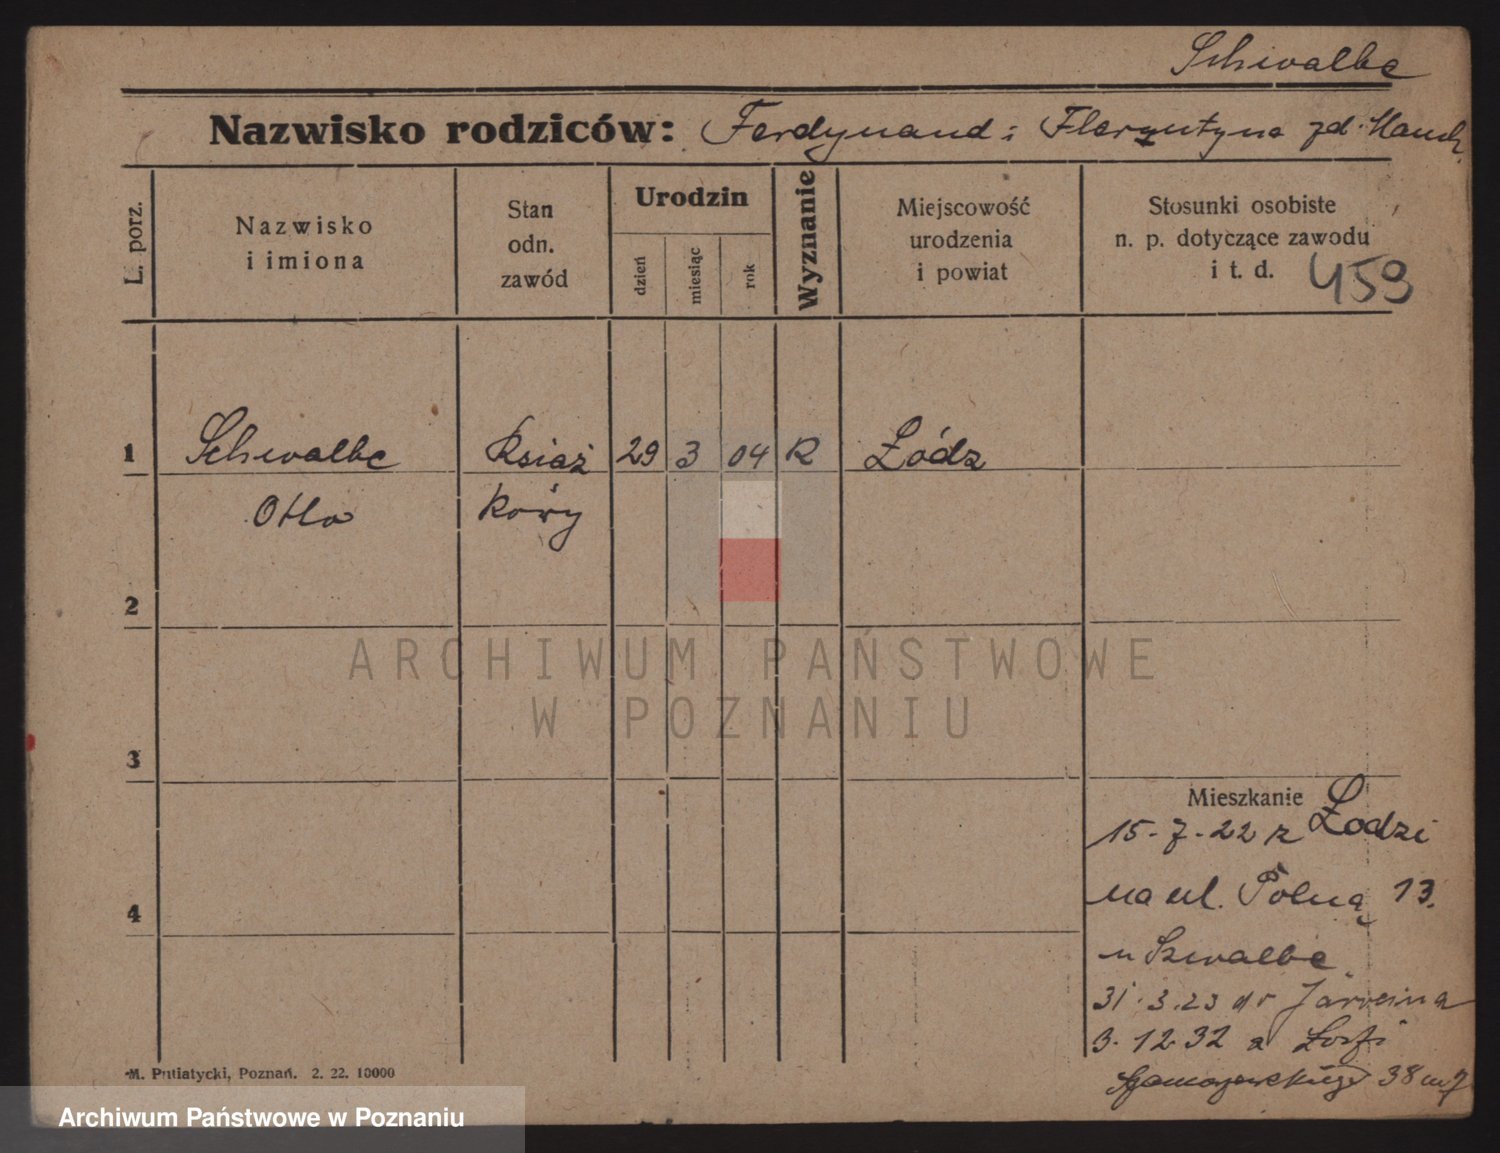 Schwalbe
Nazwisko rodziców: Ferdynand i Florentyna zd.
L. porz.
Nazwisko i imiona
Stan odn. zawód
Urodzin
dzień
miesiąc
rok
Wyznanie
Miejscowość urodzenia i powiat
Stosunki osobiste n. p. dotyczące zawodu i t. d.
459
1 Schwalbe Książ 29 3 04 R Łódz
Otto kowy
2
ARCHIWUM PAŃSTWOWE
W POZNANIU
3
Mieszkanie
15-7-22 z Łodzi
4 na ul. Polną 13.
u Szwalbe
31.3.23 do Jarocina
3.12.32 z
38 m 7
M. Putiatycki, Poznań. 2. 22. 10000
Archiwum Państwowe w Poznaniu